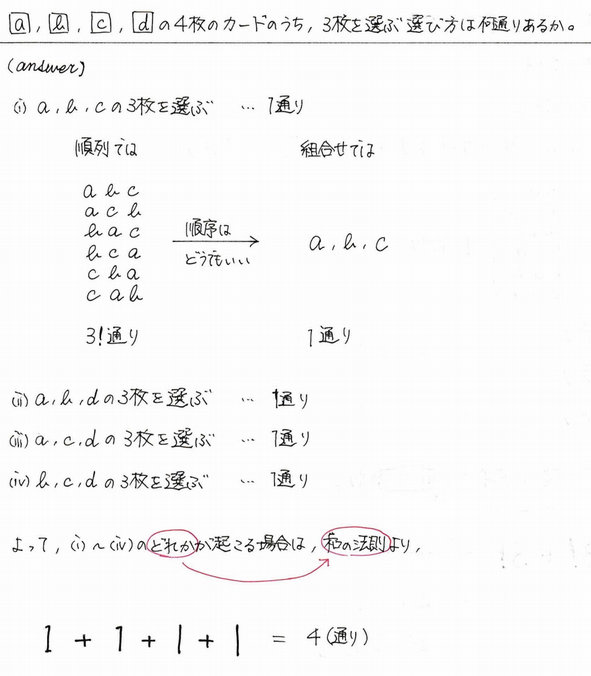 a, b, c, d の4枚のカードのうち, 3枚を選ぶ選び方は何通りあるか。
(answer)
(i) a, b, c の3枚を選ぶ … 1通り
順列では 組合せでは
a b c
a c b
b a c
b c a
c b a
c a b
順序は
どうでもいい
a, b, c
3!通り 1通り
(ii) a, b, d の3枚を選ぶ … 1通り
(iii) a, c, d の3枚を選ぶ … 1通り
(iv) b, c, d の3枚を選ぶ … 1通り
よって, (i)~(iv)のどれかが起こる場合は, 和の法則より,
1 + 1 + 1 + 1 = 4(通り)